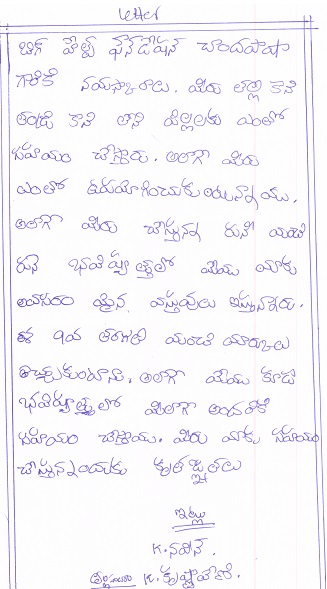 letter
బిగ్ హెల్ప్ ఫౌండేషన్ చాందపాషా
గారికి నమస్కారాలు. మీరు తల్లి కాని
తండ్రి కాని లేని పిల్లలకు ఎంతో
సహాయం చేస్తారు. అలాగే మీరు
ఎంతో ఉపయోగించుకుంటున్నాము.
అలాగే మీరు చేస్తున్న
భవిష్యత్తులో మేము మాకు
అవసరం మైన వస్తువులు ఇస్తున్నారు.
ఈ 10వ తరగతి మంచి మార్కులు
తెచ్చుకుంటాను. అలాగే మేము కూడా
భవిష్యత్తులో మీలాగే అందరికి
సహాయం చేస్తాము. మీరు మాకు సహాయం
చేస్తున్నందుకు కృతజ్ఞతలు
ఇట్లు
K. నవీన్.
K. కృష్ణవేణి.